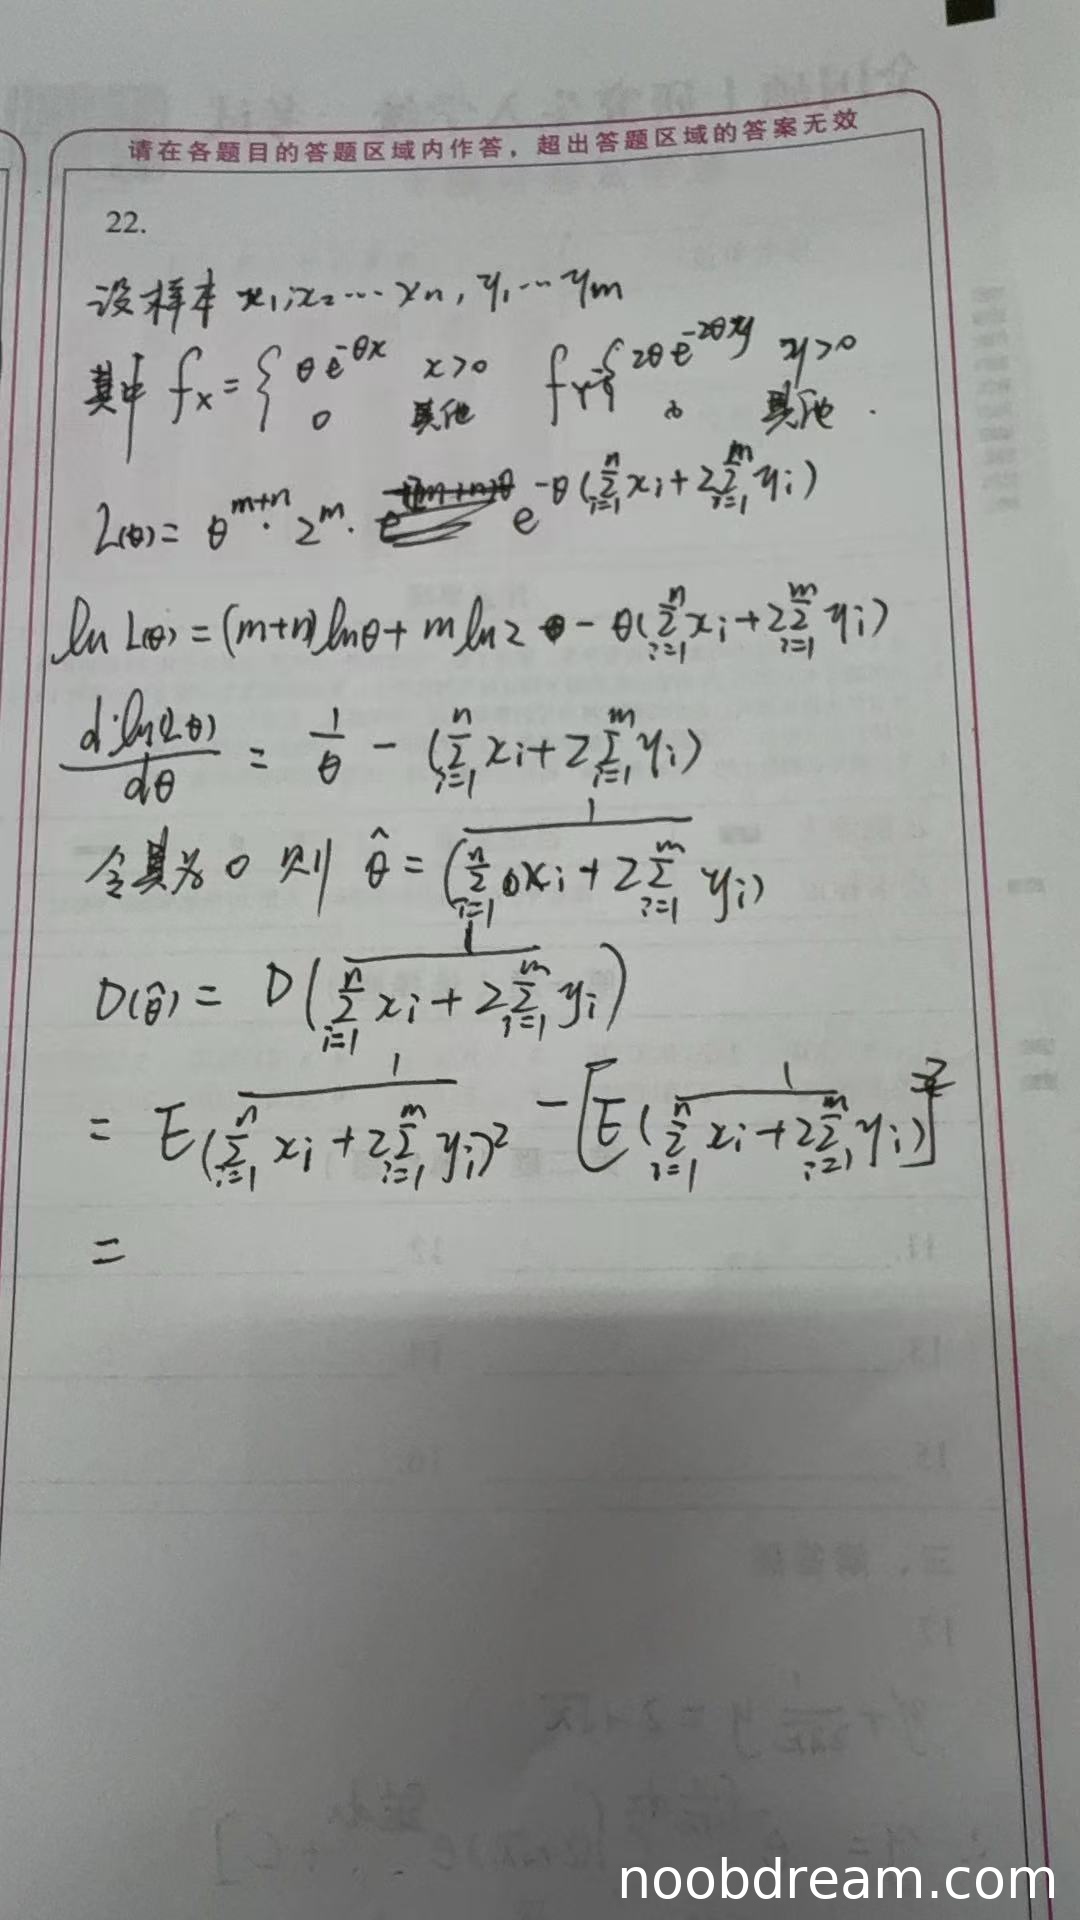 请在各题目的答题区域内作答，超出答题区域的答案无效
22.
设样本 x₁, x₂ … xₙ, y₁ … yₘ
其中 f_X = { θe^{-θx} x>0 ; 0 其他 f_Y = { 2θe^{-2θy} y>0 ; 0 其他 .
L(θ) = θ^{m+n} · 2^m · e^{-θ(∑_{i=1}^n x_i + 2∑_{i=1}^m y_i)}
ln L(θ) = (m+n) lnθ + m ln2 - θ(∑_{i=1}^n x_i + 2∑_{i=1}^m y_i)
d ln(Lθ)/dθ = 1/θ - (∑_{i=1}^n x_i + 2∑_{i=1}^m y_i)
令其为 0 则 θ̂ = 1/(∑_{i=1}^n x_i + 2∑_{i=1}^m y_i)
D(θ̂) = D(1/(∑_{i=1}^n x_i + 2∑_{i=1}^m y_i))
= E 1/(∑_{i=1}^n x_i + 2∑_{i=1}^m y_i)² - [E(1/(∑_{i=1}^n x_i + 2∑_{i=1}^m y_i))]²
=
noobdream.com